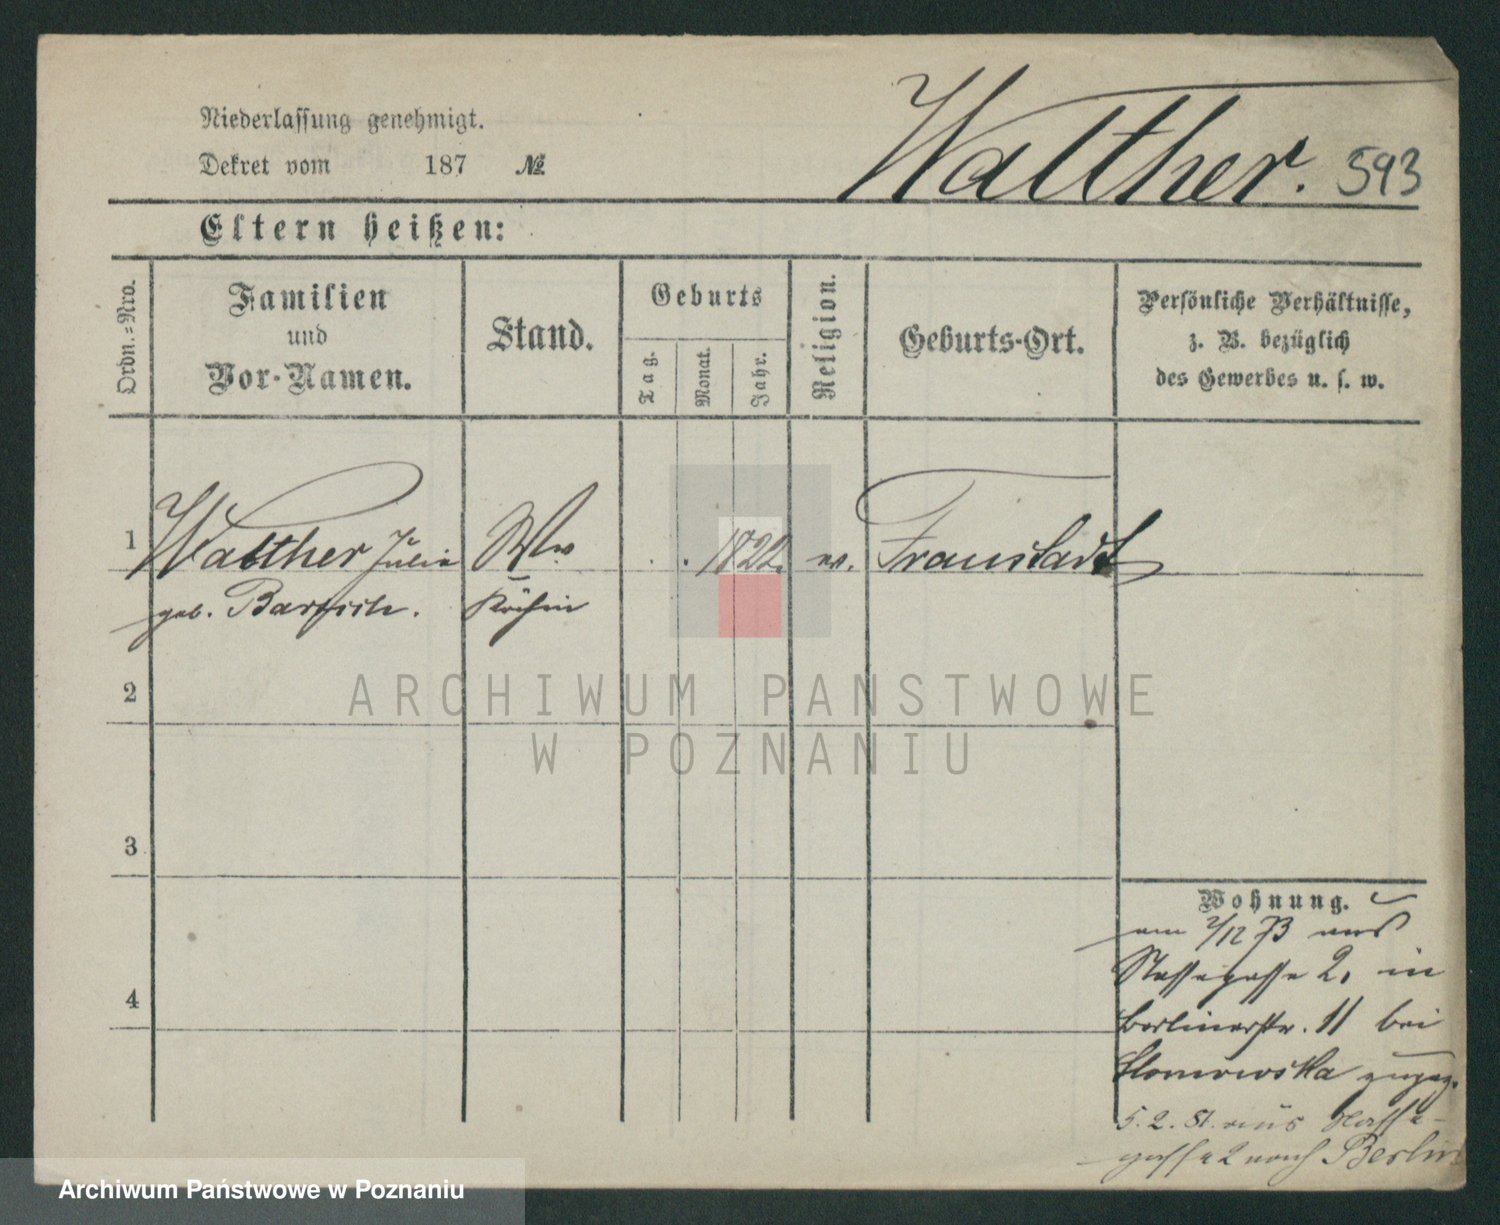 Niederlassung genehmigt.
Dekret vom 187 №
Walther. 593
Eltern heißen:
Ordn.=Nro.
Familien
und
Vor-Namen.
Stand.
Geburts
Tag.
Monat.
Jahr.
Religion.
Geburts-Ort.
Persönliche Verhältnisse,
z. B. bezüglich
des Gewerbes u. s. w.
1 Walther Julie Ww 1822. ev. Fraustadt
geb. Köchin
2
3
4
Wohnung.
am 2/12 73 aus
2, in
Berlinerstr. 11 bei
zugez.
5. 2. aus
gasse 2 nach Berlin
ARCHIWUM PANSTWOWE
W POZNANIU
Archiwum Państwowe w Poznaniu